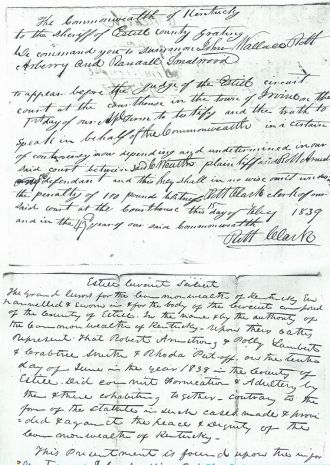 The Commonwealth of Kentucky
to the Sheriff of Estill County Greeting
We command you to summon John Wallace Pitt
Arberry and Randall Smalwood
to appear before the Judge of the Estill circuit
court at the courthouse in the town of Irvine on the
1st day of our Apl term to testify and the truth to
speak in behalf of the Commonwealth in a certain
of controversy now depending and undetermined in our
said court between plaintiff and
defendant and this they shall in no wise omit under
the penalty of 100 pounds Witness Pitt Clark clerk of our
said court at the Courthouse this 15 day of Feby 1839
and in the year of our said Commonwealth
Pitt Clark
Estill Circuit Sct
The grand Jurors for the Commonwealth of Kentucky Em
pannelled & sworn in & for the body of the Circuit composed
of the County of Estill In the name & by the authority of
the Common wealth of Kentucky Upon their oaths
Represent That Robert Armstrong & Polly Lambert
& Crabtree Smith & Rhoda on the tenth
day of June in the year 1838 in the County of
Estill did commit Fornication & Adultery by
then & there cohabiting together contrary to the
form of the statutes in such cases made & provi
-ded & against the peace & dignity of the
Common wealth of Kentucky
This Presentment is found upon the